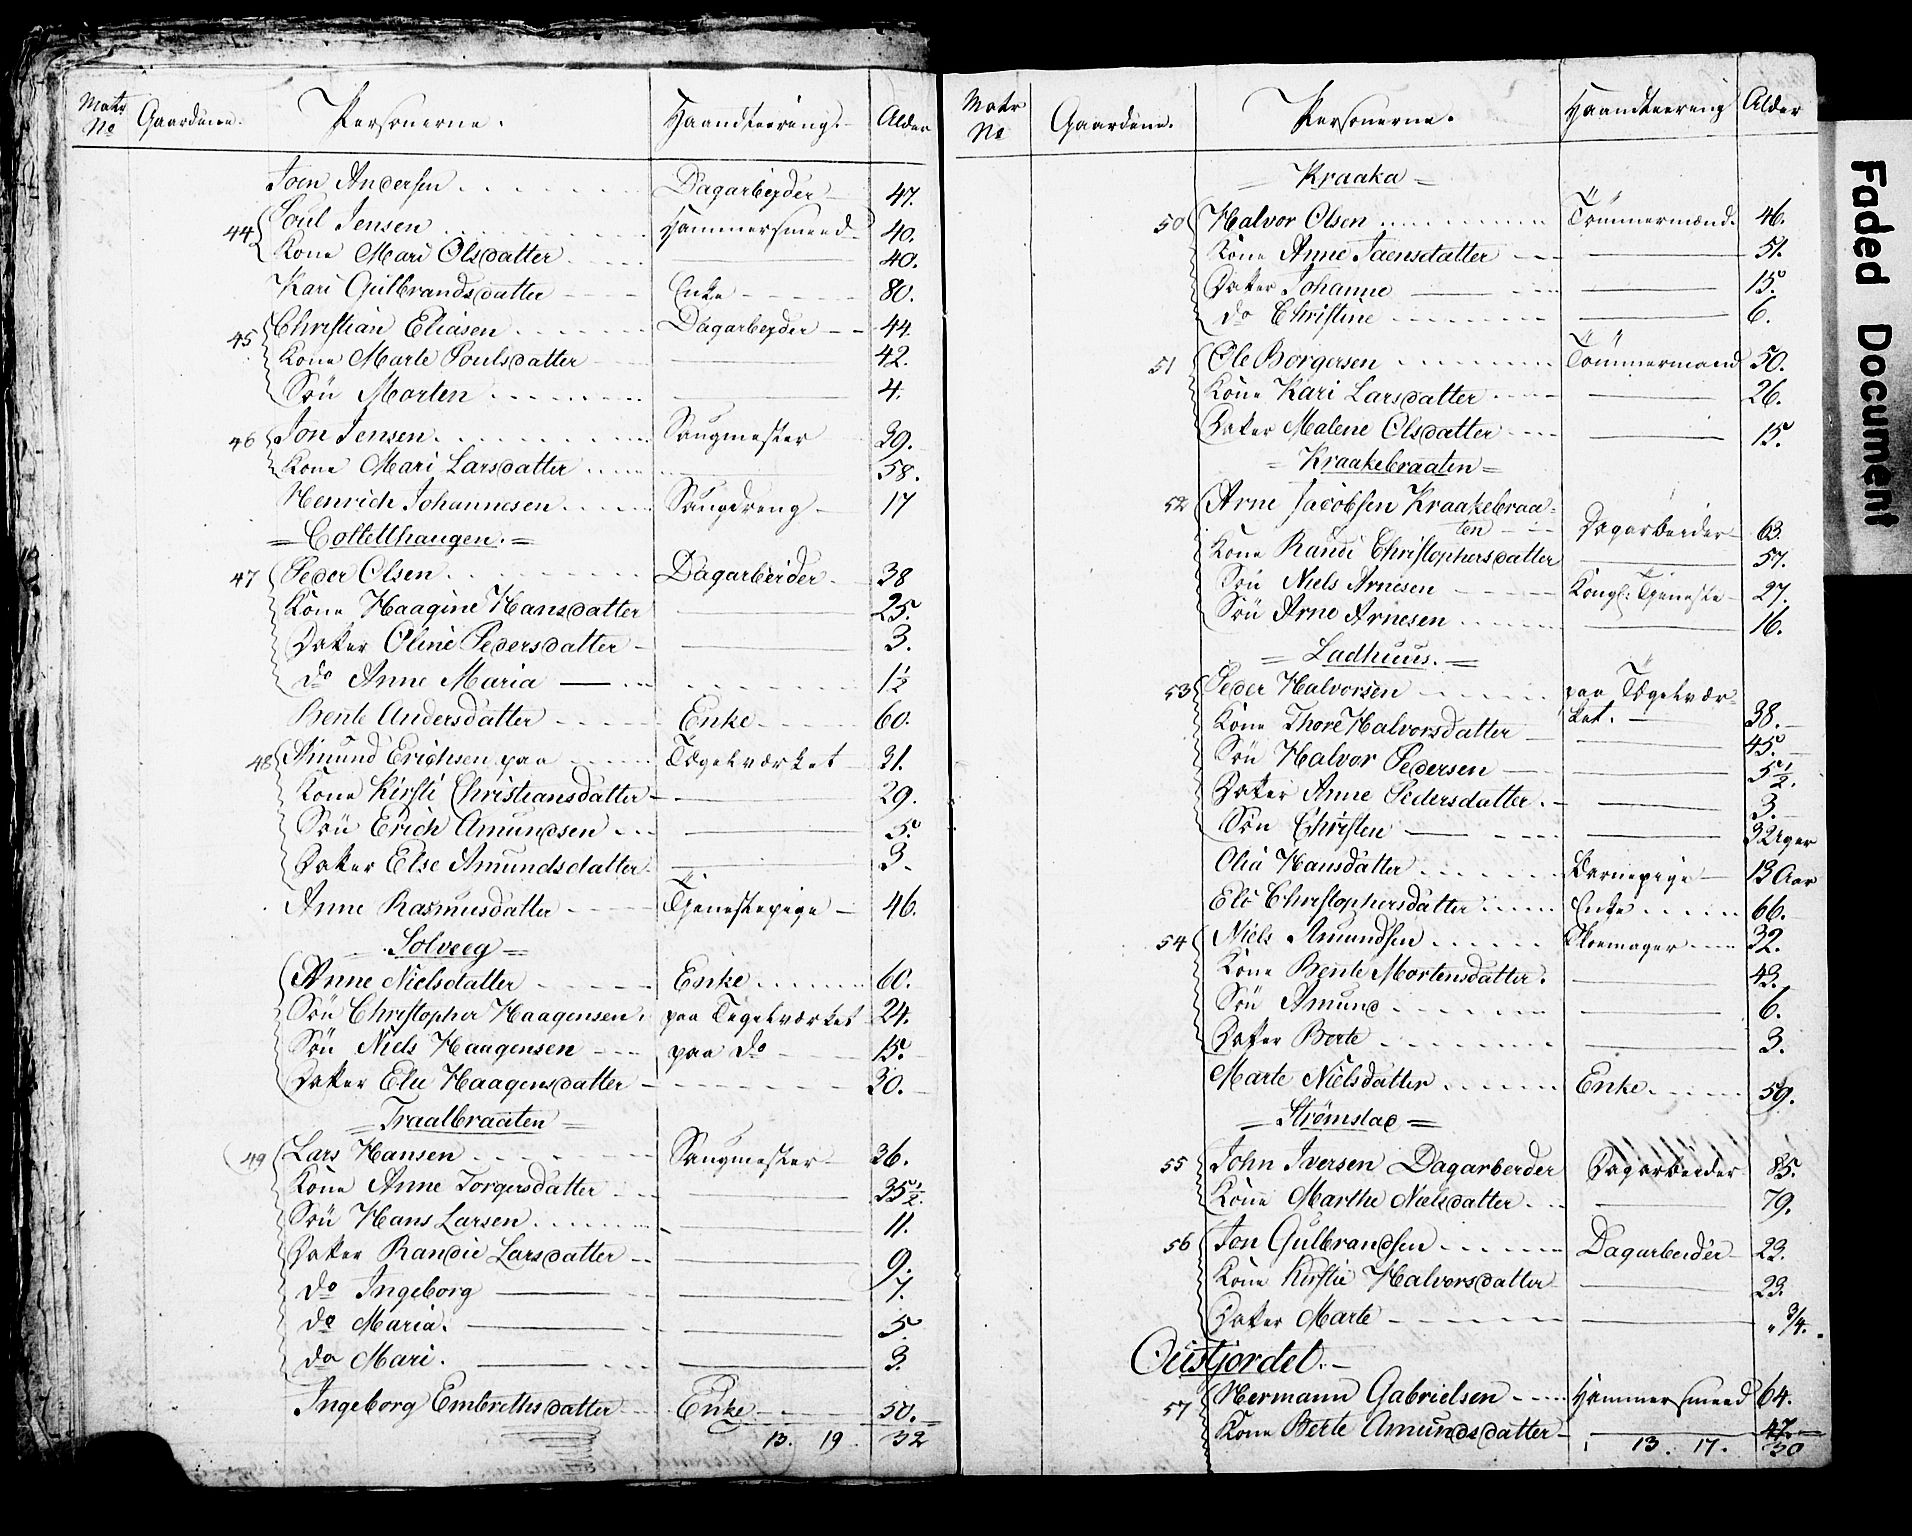 Matr No Gaardene. Personerne. Haandteering. Alder
Joen Andersen Dagarbejder 47.
44 Poul Jensen Hammersmed 40.
Kone Mari Olsdatter 40.
Kari Gulbrandsdatter Enke 80.
45 Christian Eliasen Dagarbejder 44.
Kone Marte Poulsdatter 42.
Søn Morten 4.
46 Jon Jensen Saugmester 39.
Kone Mari Larsdatter 58.
Henrich Johannesen Saugdreng 17
= Coltellhaugen. =
47 Peder Olsen Dagarbeider 38
Kone Haagine Hansdatter 25.
Datter Oline Pedersdatter 3.
do Anne Maria 1½
Bente Andersdatter Enke 60.
48 Amund Erichsen paa Tægelværket 31.
Kone Kirsti Christiansdatter 29.
Søn Erich Amundsen 5.
Datter Else Amundsdatter 3.
Anne Rasmusdatter Tjenestepige 46.
= Solveeg =
Anne Nielsdatter Enke 60.
Søn Christopher Haagensen. paa Tegelværket 24.
Søn Niels Haagensen paa do 15.
Datter Elie Haagensdatter 30.
= Traalbraaten =
49 Lars Hansen Saugmester 36.
Kone Anne Torgersdatter 35½.
Søn Hans Larsen 11.
Datter Randie Larsdatter 9.
do Ingeborg 7.
do Maria. 5
do Mari. 3.
Ingeborg Embrethsdatter Enke 50.
13. 19. 32
Matr No Gaardene. Personerne. Haandteering Alder
= Kraaka =
50 Halvor Olsen Tømmermand. 46.
Kone Anne Jaensdatter 51.
Datter Johanne 15.
do Christine 6.
51 Ole Borgersen Tømmermand 50.
Kone Kari Larsdatter 26.
Datter Malene Olsdatter 15.
= Kraakebraaten =
52 Arne Jacobsen Kraakebraa-
ten Dagarbeider 63.
Kone Randi Christophersdatter 57.
Søn Niels Arnesen Kongl: Tjeneste 27.
Søn Arne Arnesen 16.
= Ladhuus. =
53 Peder Halvorsen paa Tægelvær-
ket. 38.
Kone Thore Halvorsdatter 45.
Søn Halvor Pedersen 5½.
Datter Anne Pedersdatter. 3.
Søn Christen 32 Uger
Olia Hansdatter Barnepige 13 Aar
Eli Christophersdatter Enke 66.
54 Niels Amundsen Skomager 32.
Kone Bente Mortensdatter. 43.
Søn Amund 6.
Datter Berte 3.
Marte Nielsdatter Enke 59.
= Strømstad =
55 John Iversen Dagarbeider Dagarbeider 85.
Kone Marthe Nielsdatter 79.
56 Jon Gulbrandsen Dagarbeider 23.
Kone Kirstie Halvorsdatter 23.
Datter Marte " ¾.
Oustjordet.
57 Hermann Gabrielsen Hammersmed 64.
Kone Berte Amundsdatter 47.
13. 17. 30
Faded Document